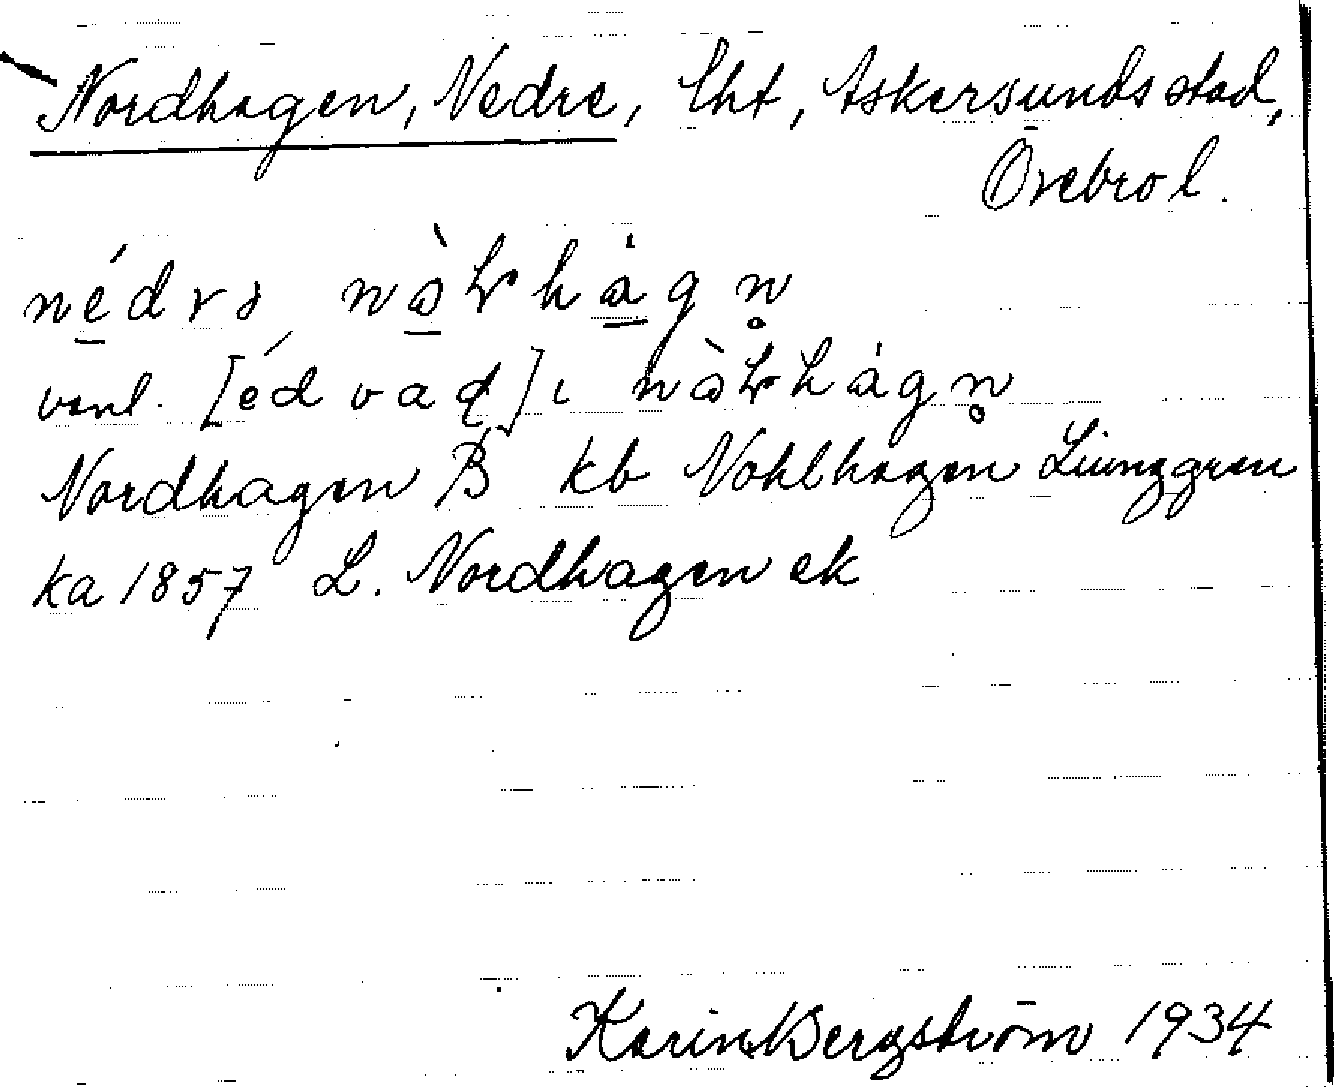 Nordhagen, Nedre, lht, Askersunds stad,
Örebro l.
nédrə nòꞎhàgn̥
vanl. [édvaḍ]ı nòꞎhàgn̥
Nordhagen B kb Nohlhagen Liunggren
ka 1857 L. Nordhagen ek
Karin Bergström 1934